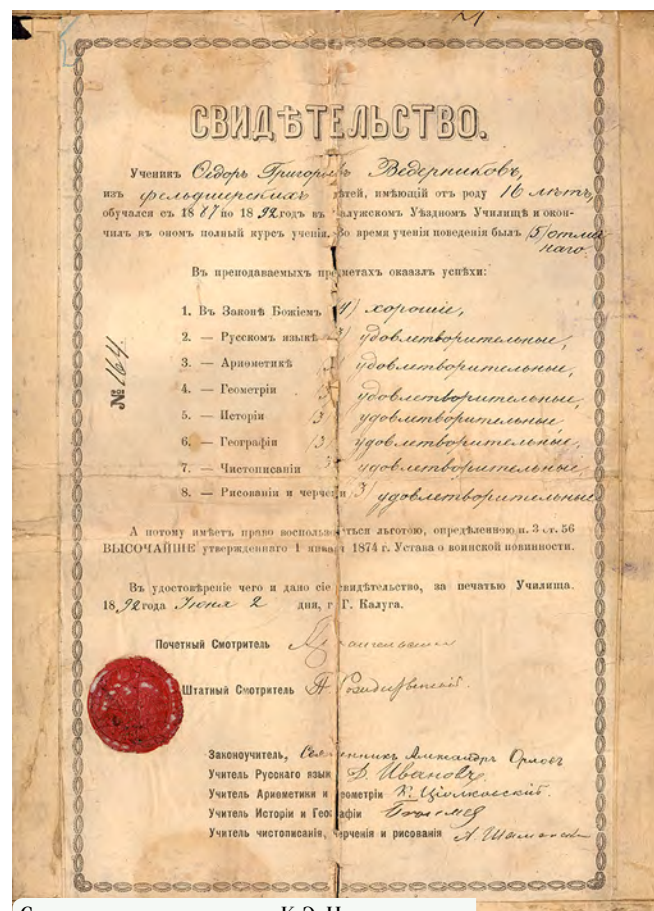 СВИДѢТЕЛЬСТВО.
Ученикъ Ѳедоръ Григорьевъ Ведерниковъ,
изъ фельдшерскихъ дѣтей, имѣющій отъ роду 16 лѣтъ,
обучался съ 1887 по 1892 годъ въ Калужскомъ Уѣздномъ Училищѣ и окон-
чилъ въ ономъ полный курсъ ученія. Во время ученія поведенія былъ (5) отлич
наго.
Въ преподаваемыхъ предметахъ оказалъ успѣхи:
1. Въ Законѣ Божіемъ (4) хорошіе,
2. — Русскомъ языкѣ 3) удовлетворительные,
3. — Ариѳметикѣ 3) удовлетворительные,
4. — Геометріи (3) удовлетворительные,
5. — Исторіи (3) удовлетворительные,
6. — Географіи (3) удовлетворительные,
7. — Чистописаніи 3) удовлетворительные,
8. — Рисованіи и черченіи 3) удовлетворительные
№ 164.
А потому имѣетъ право воспользоваться льготою, опредѣленною п. 3 ст. 56
ВЫСОЧАЙШЕ утвержденнаго 1 января 1874 г. Устава о воинской повинности.
Въ удостовѣреніе чего и дано сіе свидѣтельство, за печатью Училища.
1892 года Іюня 2 дня, г. Калуга.
Почетный Смотритель
Штатный Смотритель
Законоучитель, Священникъ Александръ Орловъ
Учитель Русскаго языка Д. Ивановъ
Учитель Ариѳметики и Геометріи К. Ціолковскій.
Учитель Исторіи и Географіи
Учитель чистописанія, черченія и рисованія А. Шаманскі